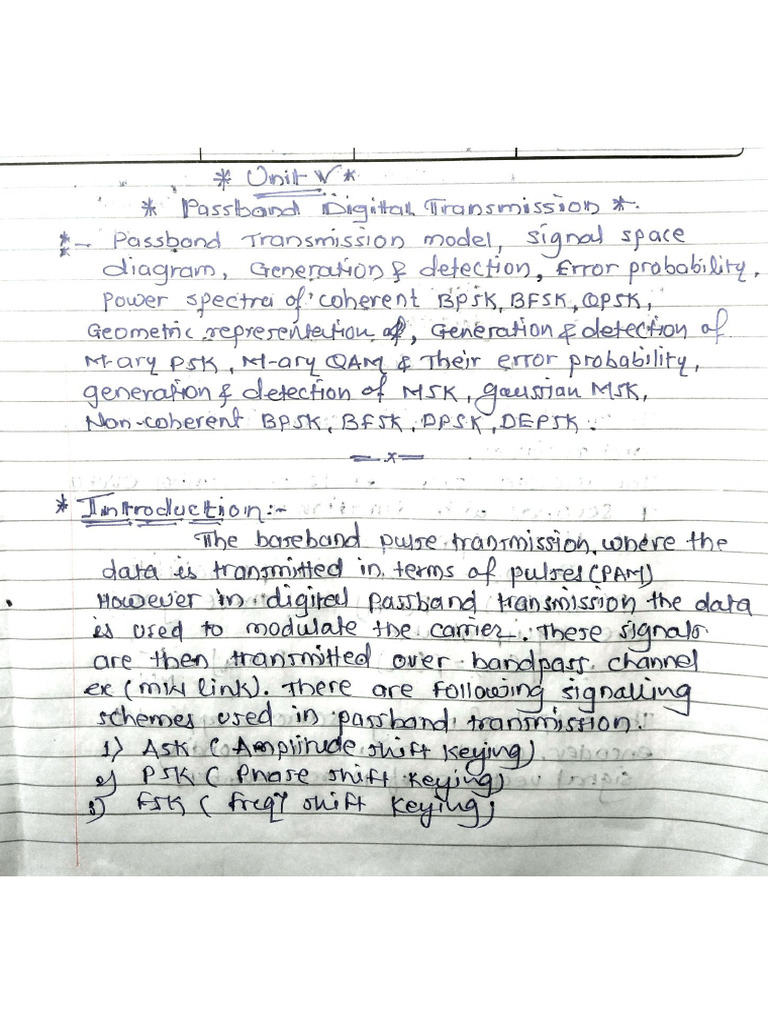 * Unit V *
* Passband Digital Transmission *.
*:- Passband Transmission model, signal space
diagram, Generation & detection, Error probability,
Power spectra of coherent BPSK, BFSK, QPSK,
Geometric representation of, Generation & detection of
M-ary PSK, M-ary QAM & Their error probability,
generation & detection of MSK, gaussian MSK,
Non-coherent BPSK, BFSK, DPSK, DEPSK.
—x—
* Introduction:-
The baseband pulse transmission, where the
data is transmitted in terms of pulses (PAM)
However in digital passband transmission the data
is used to modulate the carrier. These signals
are then transmitted over bandpass channel
ex (MW link). There are following signalling
schemes used in passband transmission.
1) ASK (Amplitude shift keying)
2) PSK (Phase shift keying)
3) FSK (freqy shift keying)